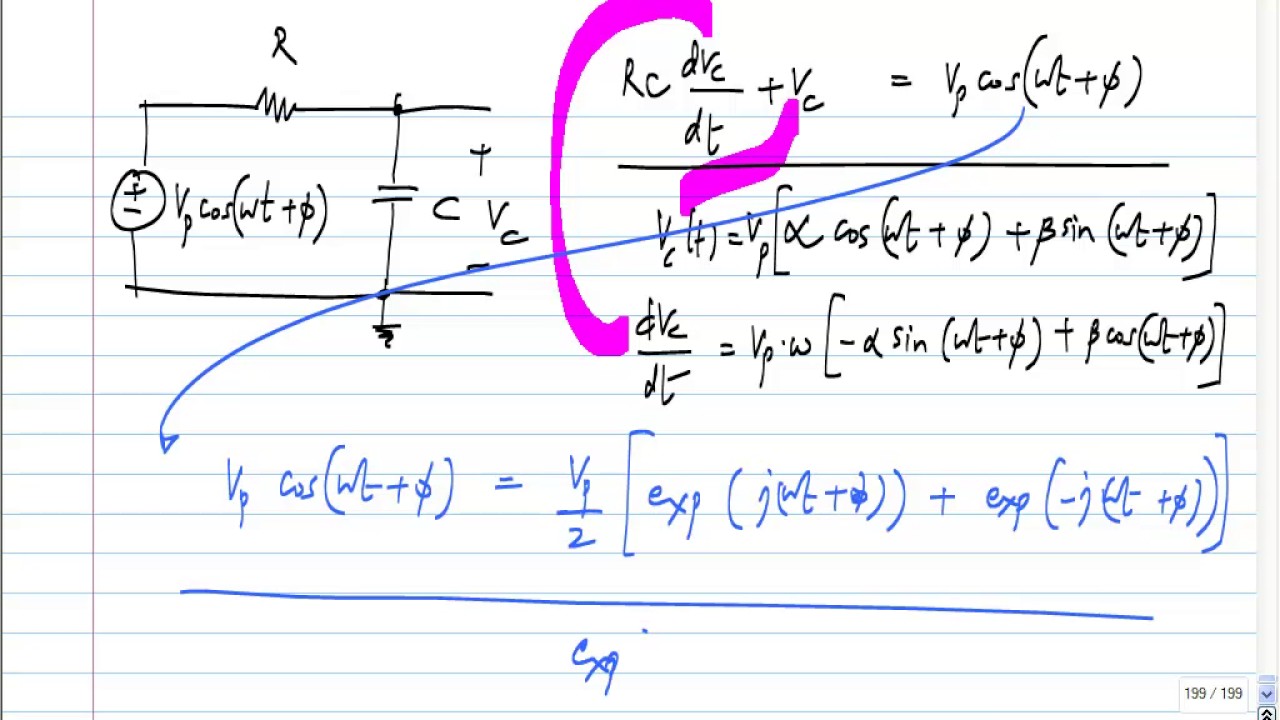 R
RC dVc/dt + Vc = Vp cos(ωt+φ)
+
+
-
Vp cos(ωt+φ)
C
Vc
-
Vc(t) = Vp[α cos(ωt+φ) + β sin(ωt+φ)]
dVc/dt = Vp·ω [-α sin(ωt+φ) + β cos(ωt+φ)]
Vp cos(ωt+φ) = Vp/2 [exp(j(ωt+φ)) + exp(-j(ωt+φ))]
exp
199 / 199